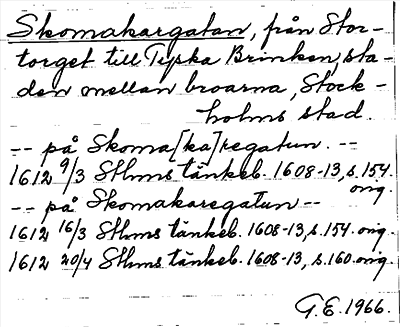 Skomakargatan, från Stor-
torget till Tyska Brinken, sta-
den mellan broarna, Stock-
holms stad.
-- på Skoma[ka]regatun. --
1612 9/3 Sthms tänkeb. 1608-13, s. 154.
orig.
-- på Skomakaregatun --
1612 16/3 Sthms tänkeb. 1608-13, s. 154. orig.
1612 20/4 Sthms tänkeb. 1608-13, s. 160. orig.
G.E. 1966.